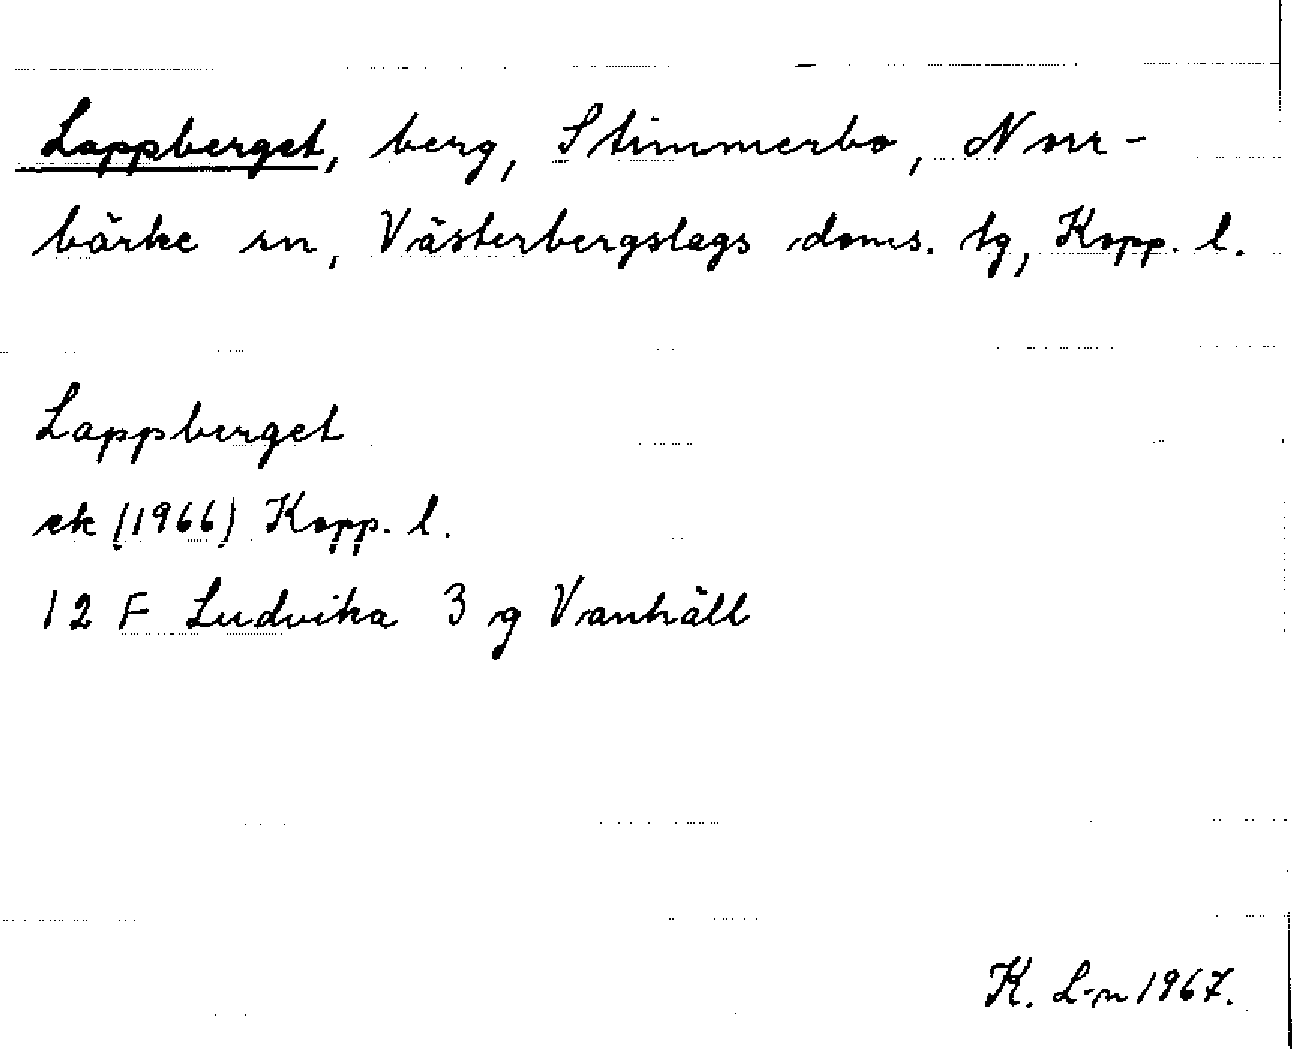 Lappberget, berg, Stimmerbo, Norr-
bärke sn, Västerbergslags doms. tg, Kopp. l.
Lappberget
ek (1966) Kopp. l.
12 F Ludvika 3 g Vanhäll
K. L-n 1967.